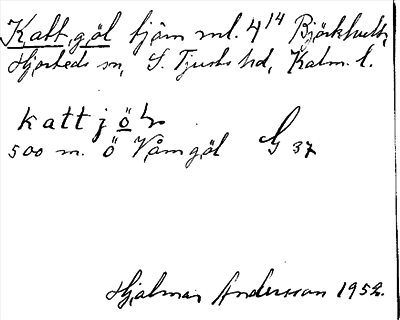 Kattgöl tjärn ml. 4¹⁴ Björkhult,
Hjorteds sn, S. Tjusts hd, Kalm. l.
kattjö̲l
500 m. ö Våmgöl G 37
Hjalmar Andersson 1952.